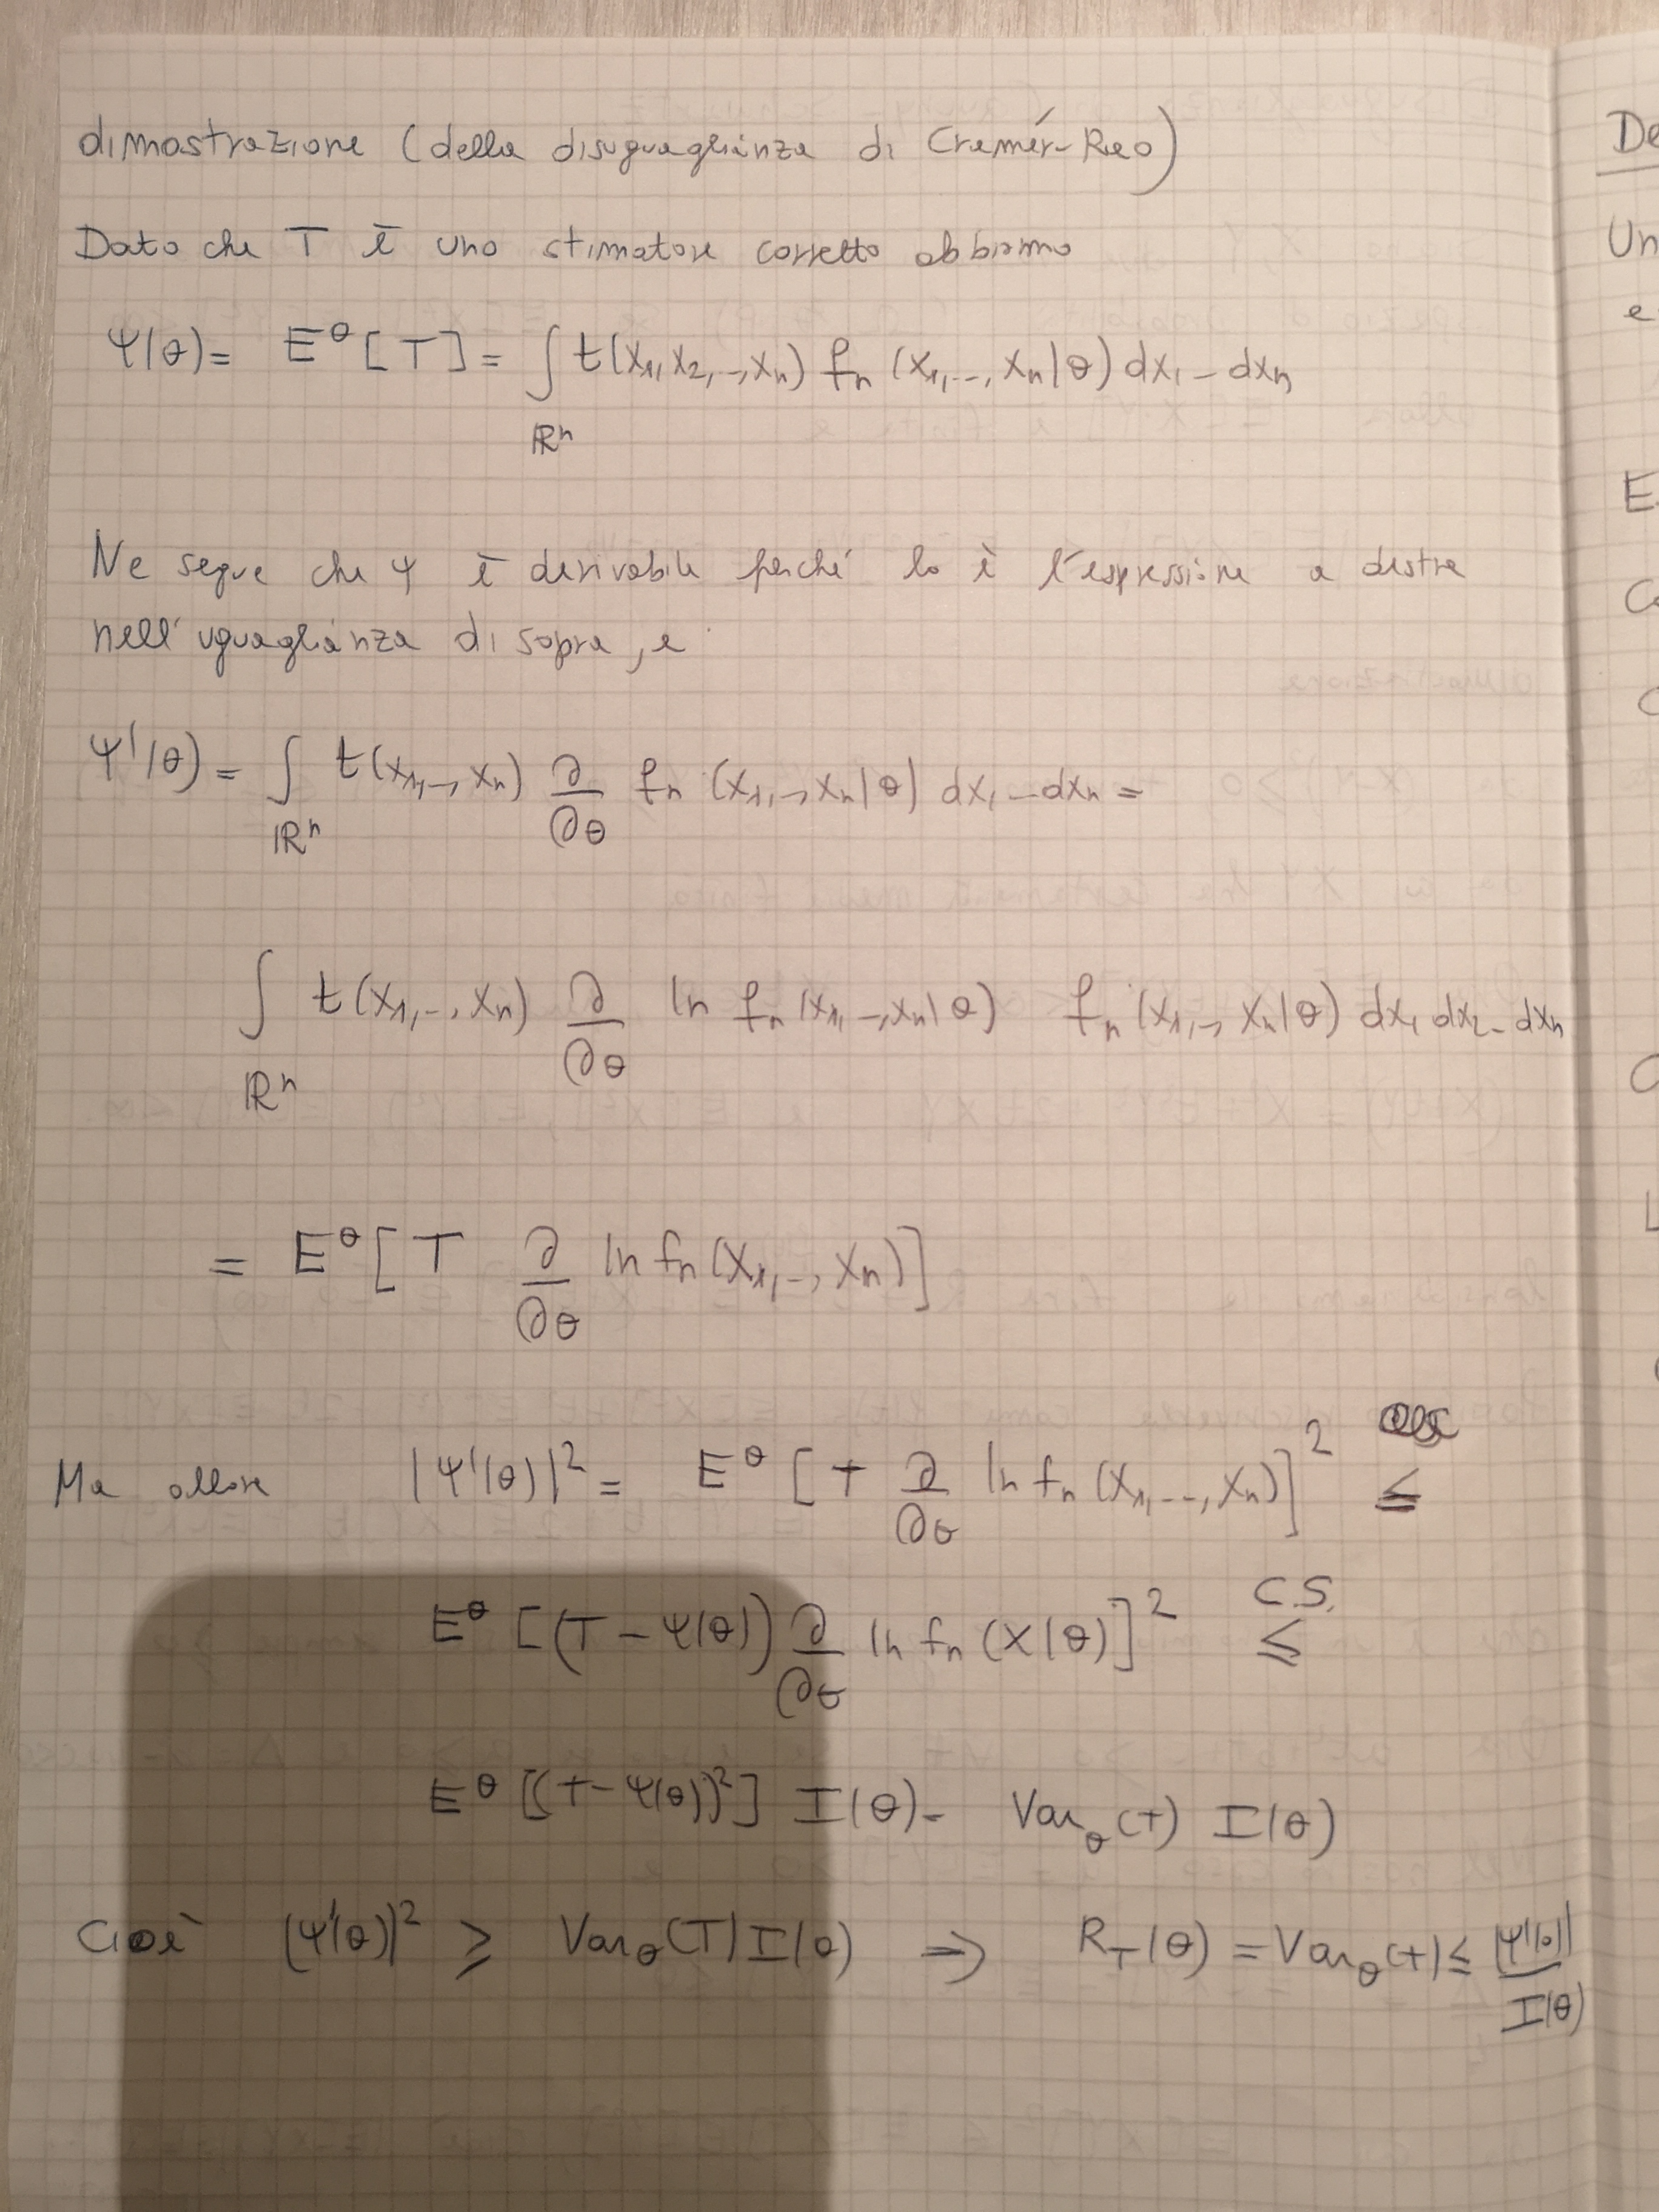 dimostrazione (della disuguaglianza di Cramér-Rao)
Dato che T è uno stimatore corretto abbiamo
Ψ(θ) = E^θ [T] = ∫_{ℝ^n} t(x_1, x_2, .., x_n) f_n (x_1, .., x_n | θ) dx_1 – dx_n
Ne segue che Ψ è derivabile perché lo è l'espressione a destra
nell'uguaglianza di sopra, e
Ψ'(θ) = ∫_{ℝ^n} t(x_1, .., x_n) ∂/∂θ f_n (x_1, .., x_n | θ) dx_1 – dx_n =
∫_{ℝ^n} t(x_1, .., x_n) ∂/∂θ ln f_n (x_1, .., x_n | θ) f_n (x_1, .., x_n | θ) dx_1 dx_2 – dx_n
= E^θ [T ∂/∂θ ln f_n (X_1, .., X_n)]
Ma allora |Ψ'(θ)|^2 = E^θ [T ∂/∂θ ln f_n (X_1, .., X_n)]^2 ≤
E^θ [(T – Ψ(θ)) ∂/∂θ ln f_n (X | θ)]^2 C.S. ≤
E^θ [(T – Ψ(θ))^2] I(θ) = Var_θ (T) I(θ)
Cioè (Ψ'(θ))^2 ≥ Var_θ (T) I(θ) ⇒ R_T (θ) = Var_θ (T) ≤ |Ψ'(θ)| / I(θ)
De
Un
e
E
C